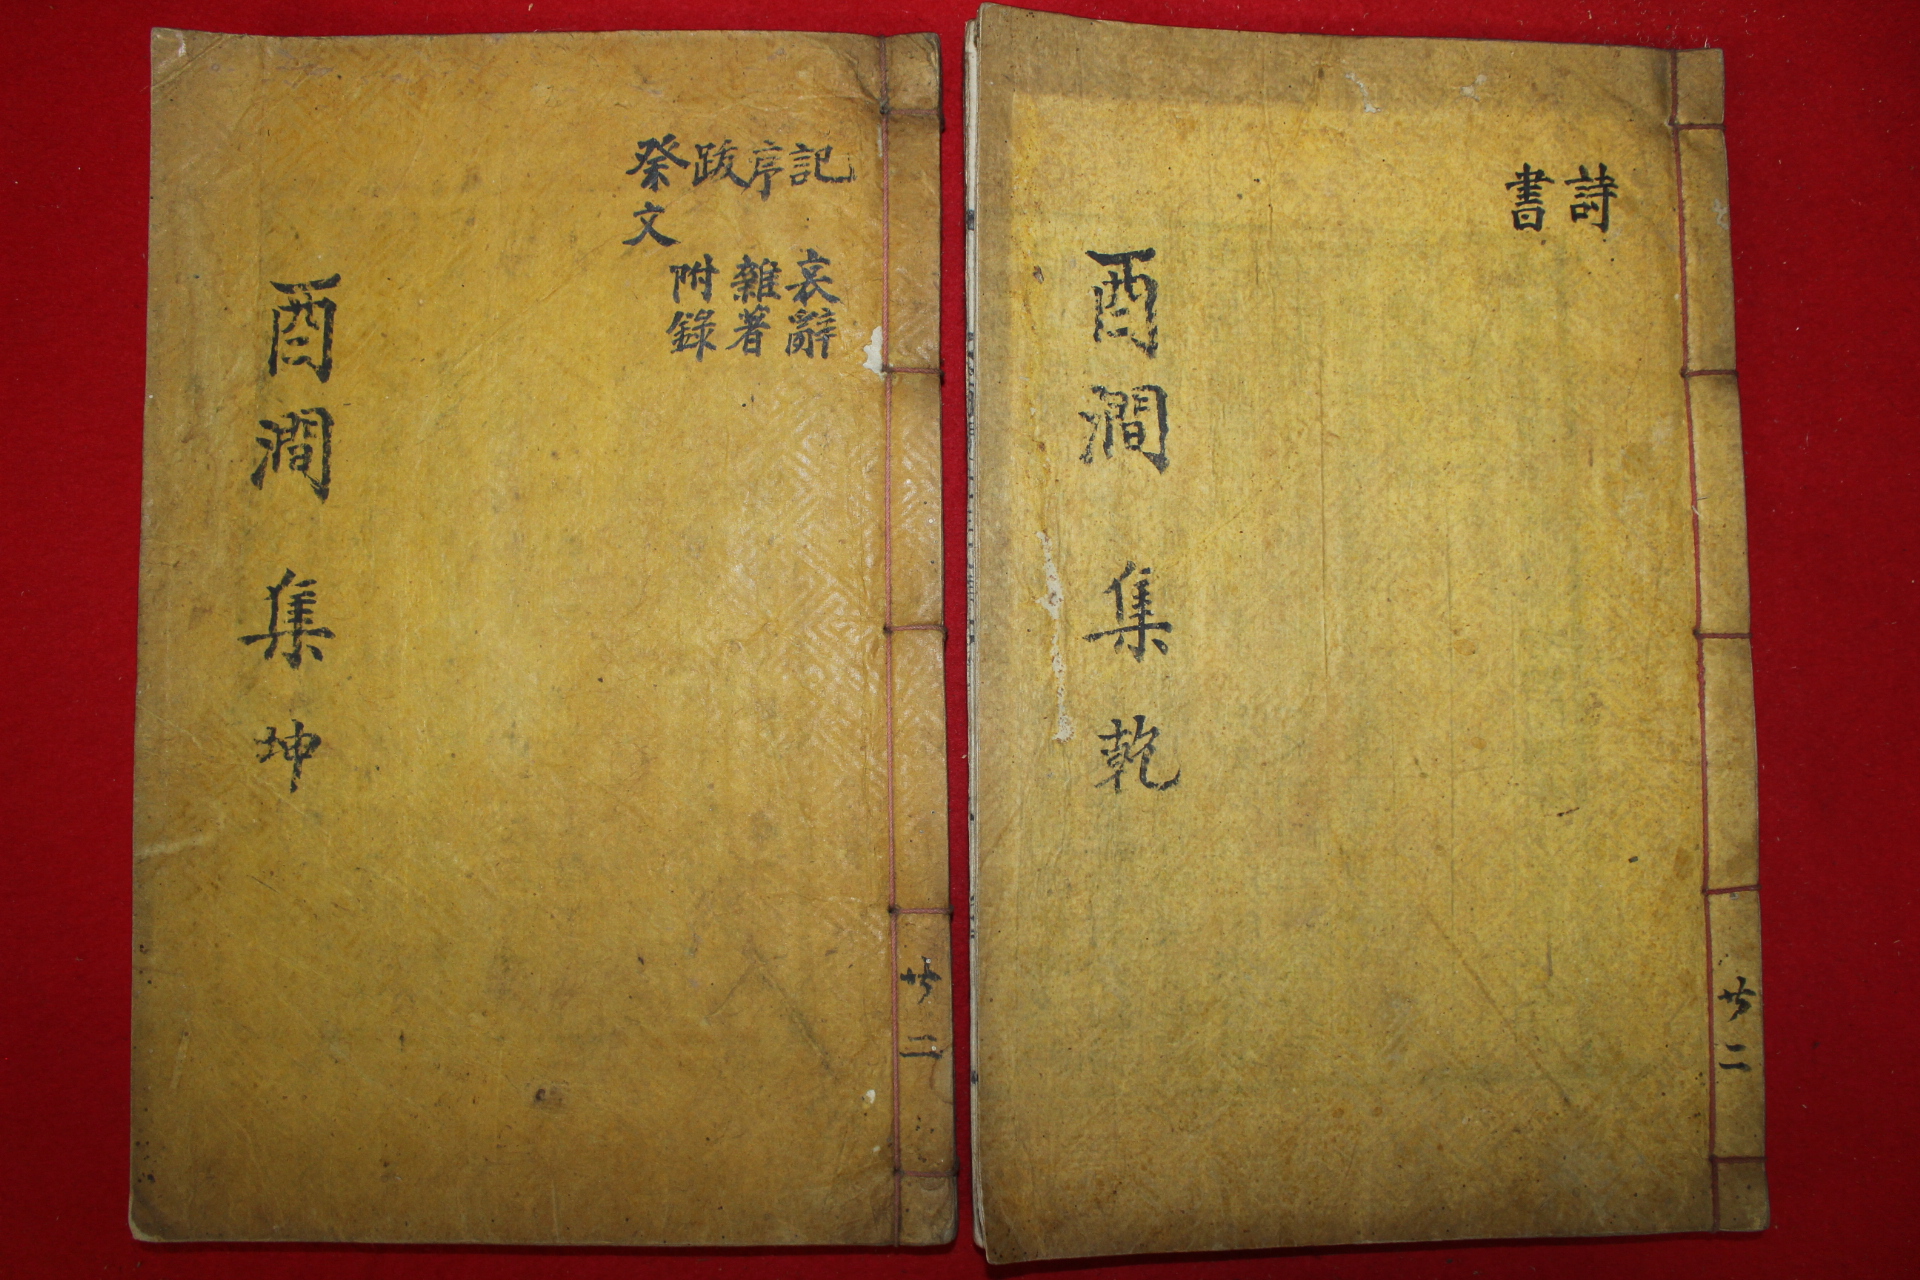 詩
書
酉澗集 乾
共二
記
序
跋
祭文
哀辭
雜著
附錄
酉澗集 坤
共二